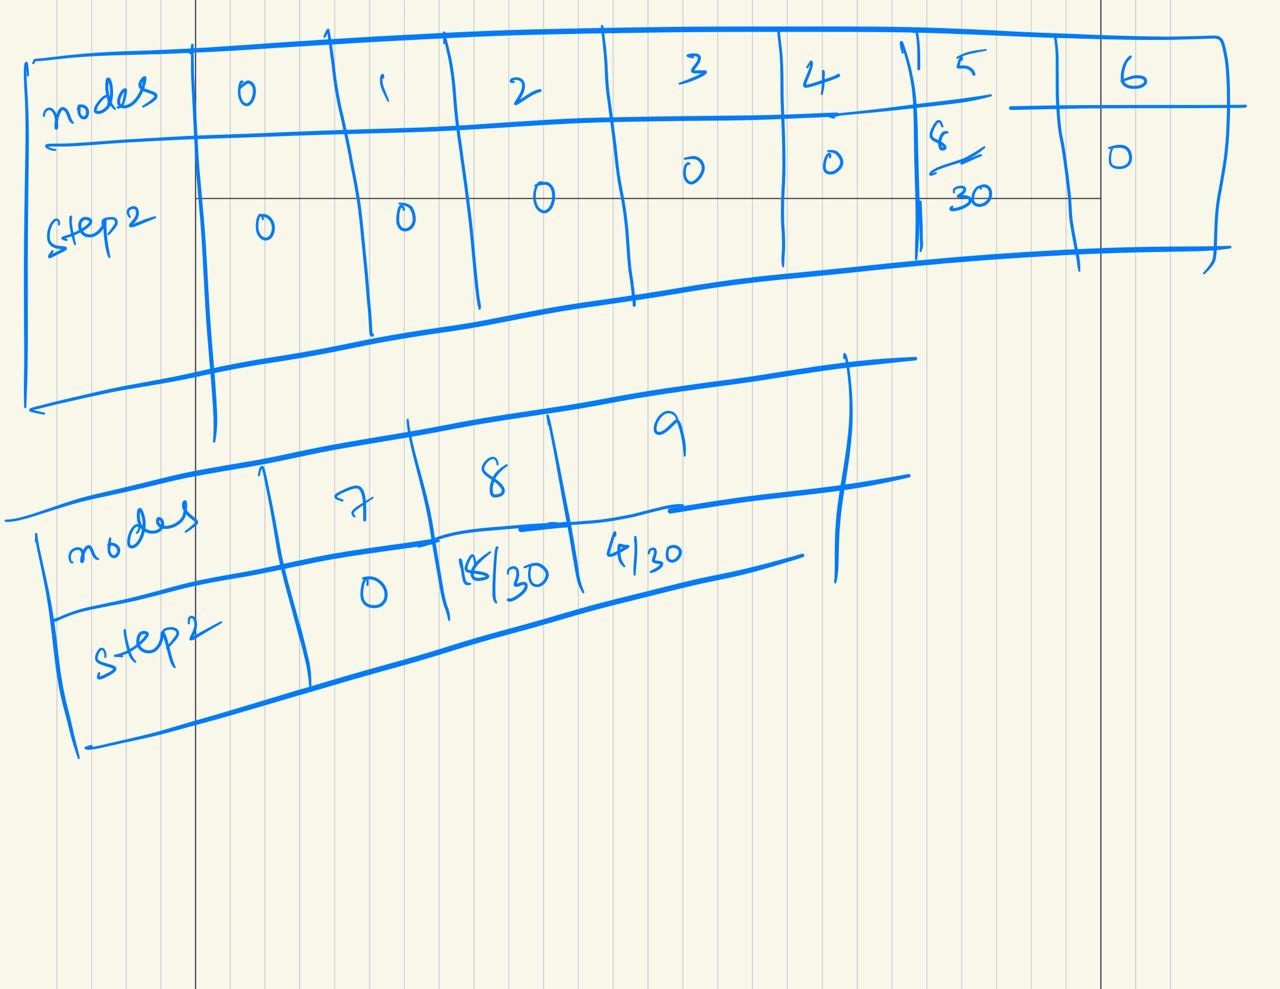 nodes 0 1 2 3 4 5 6
step2 0 0 0 0 0 8/30 0
nodes 7 8 9
step2 0 18/30 4/30